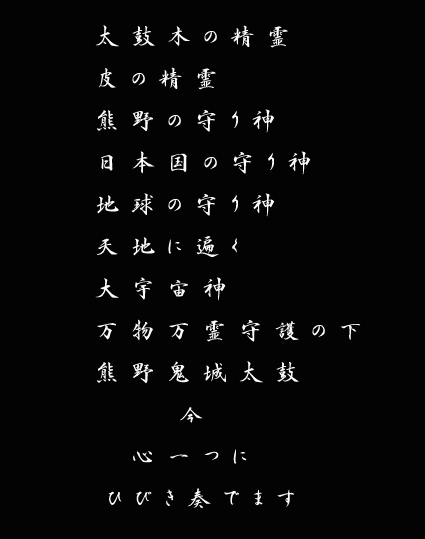 太鼓木の精霊
皮の精霊
熊野の守り神
日本国の守り神
地球の守り神
天地に遍く
大宇宙神
万物万霊守護の下
熊野鬼城太鼓
今
心一つに
ひびき奏でます